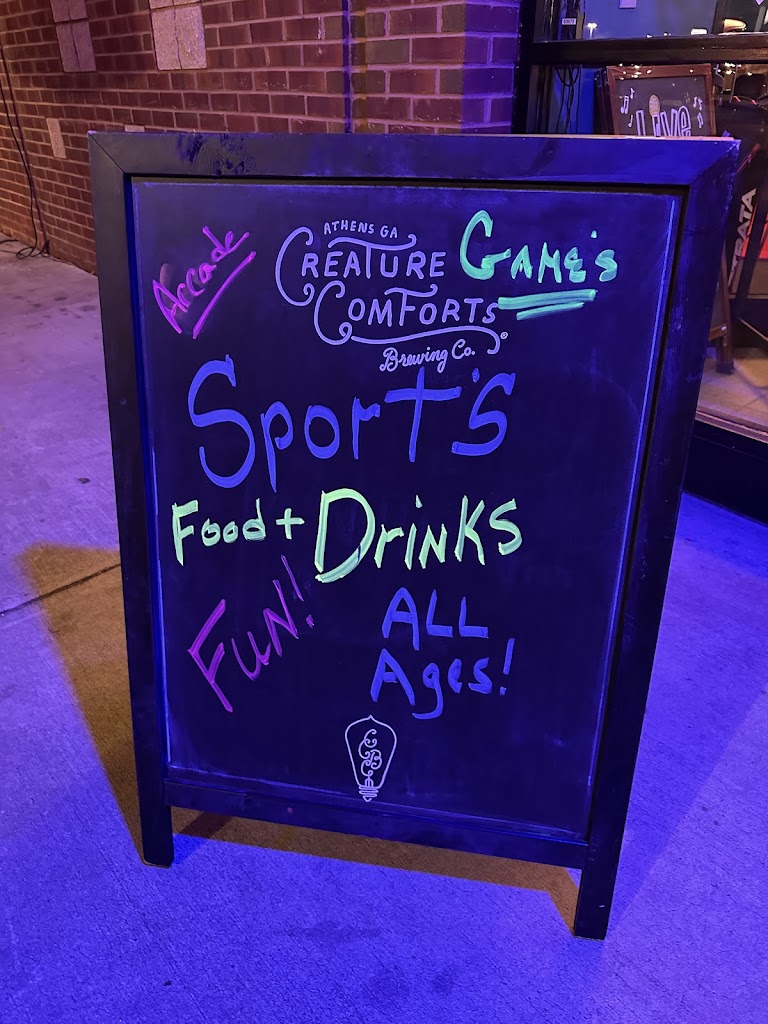 Arcade
ATHENS GA
CREATURE
COMFORTS®
Brewing Co.
GAME'S
Sport's
Food + Drinks
FUN!
ALL
Ages!
CCBC
Live
STRATA